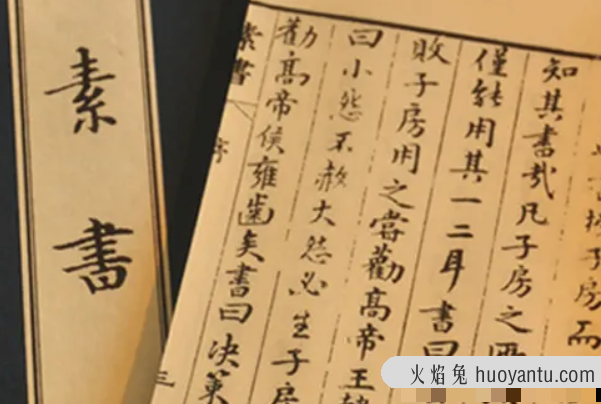 子房而
知其書哉凡子房之所
僅能用其一二耳書曰
敗子房用之嘗勸高帝王
曰小怨不赦大怨必生子房
勸高帝侯雍齒矣書曰決策
素書
序
三
素書
火焰兔 huoyantu.com